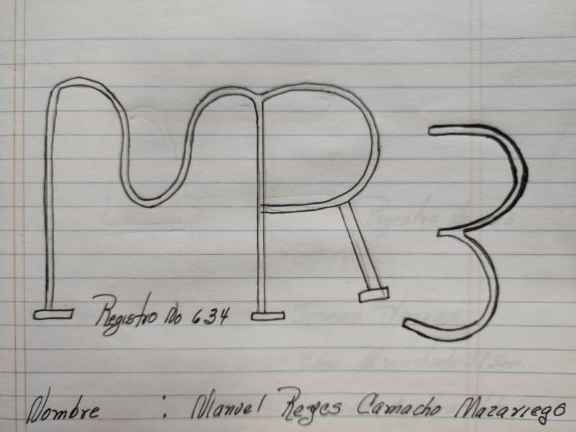 MR 3
Registro No 634
Nombre : Manuel Reyes Camacho Mazariego